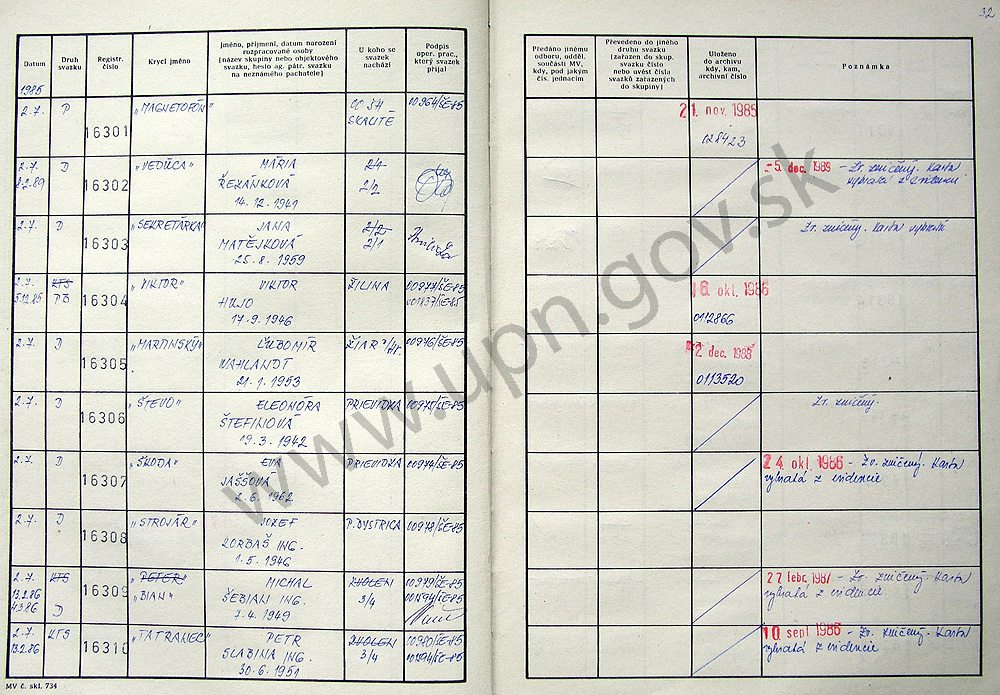 32
Datum
Druh svazku
Registr. číslo
Krycí jméno
Jméno, příjmení, datum narození
rozpracované osoby
(název skupiny nebo objektového
svazku, heslo ag. pátr. svazku
na neznámého pachatele)
U koho se
svazek
nachází
Podpis
oper. prac.,
který svazek
přijal
Předáno jinému
odboru, odděl.
součásti MV,
kdy, pod jakým
čís. jednacím
Převedeno do jiného
druhu svazku
(zařazen do skup.
svazku číslo
nebo uvést čísla
svazků zařazených
do skupiny)
Uloženo
do archivu
kdy, kam,
archivní číslo
Poznámka
1985
2.7. P 16301 "MAGNETOFÓN" 00964/ŠE-85
SKALITE
21. nov. 1985
028423
2.7. D 16302 "VEDÚCA" MÁRIA 2/1
8.2.89 ŘEZÁNKOVÁ 2/2
14.12.1941
-5. dec. 1989 - Zv. zničený. Karta
vybratá z evidencie
2.7. D 16303 "SEKRETÁRKA" JANA 2/2
MATĚJKOVÁ 2/1
25.8.1959
Zv. zničený. Karta vybratá
2.7. KTS 16304 "VIKTOR" VIKTOR ŽILINA
5.12.85 PB HUJO
17.9.1946
16. okt. 1986
0112866
2.7. D 16305 "MARTINSKÝ" ĽUBOMÍR ŽIAR n/Hr. 00976/ŠE-85
WAHLANDT
21.1.1953
2. dec. 1988
0113520
2.7. D 16306 "ŠTEVO" ELEONÓRA PRIEVIDZA 00975/ŠE-85
ŠTEFINOVÁ
19.3.1942
Zv. zničený.
2.7. D 16307 "ŠKODA" EVA PRIEVIDZA 00974/ŠE-85
JAŠŠOVÁ
2.6.1962
24. okt. 1986 - Zv. zničený. Karta
vybratá z evidencie
2.7. D 16308 "STROJÁR" JOZEF P. BYSTRICA 00978/ŠE-85
ZORBAŠ ING.
1.5.1946
2.7. KTS 16309 "PETER" MICHAL ZVOLEN 00979/ŠE-85
13.2.86 "BIAN" ŠEBIAN ING. 3/4 001594/ŠE-85
4.3.86 D 7.4.1949
27. febr. 1987 - Zv. zničený. Karta
vybratá z evidencie
2.7. KTS 16310 "TATRANEC" PETR ZVOLEN 00980/ŠE-85
13.2.86 SLABINA ING. 3/4 001594/ŠE-85
30.6.1951
10. sept. 1986 - Zv. zničený. Karta
vybratá z evidencie
MV č. skl. 734
www.upn.gov.sk